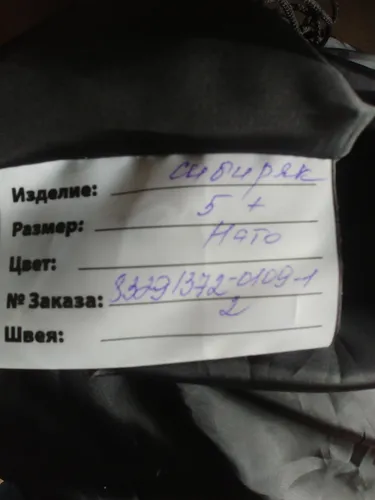 Изделие: сибиряк
Размер: 5 +
Цвет: Нато
№ Заказа: 33291372-0109-1
Швея: 2